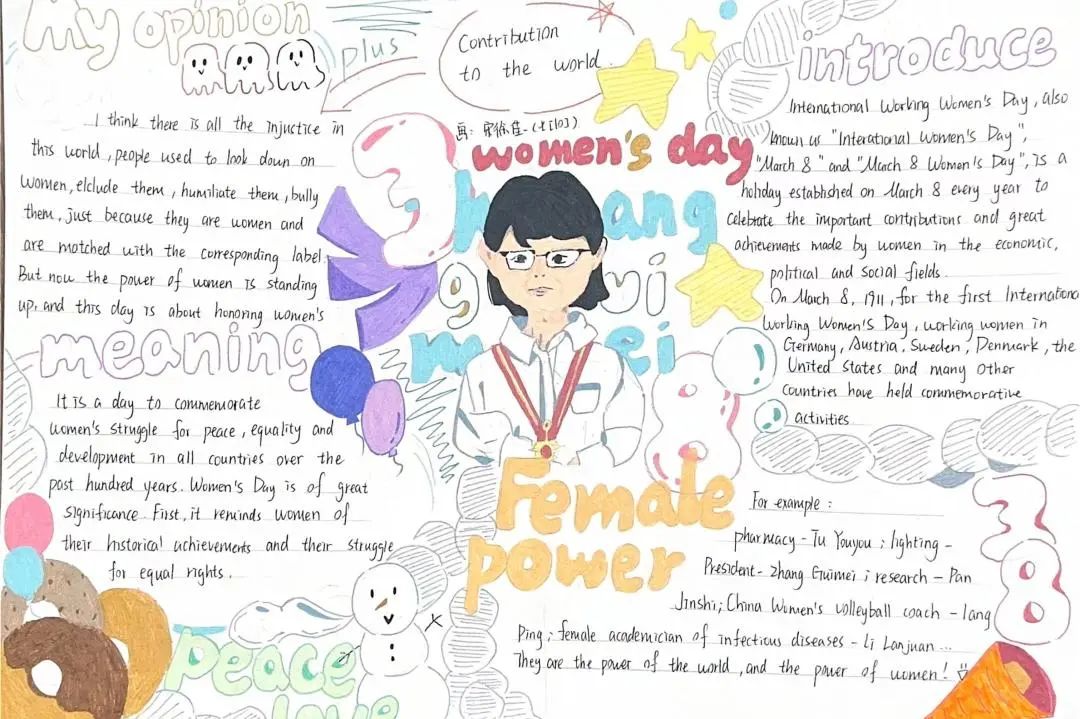 My opinion
plus
I think there is all the injustice in
this world, people used to look down on
women, elclude them, humiliate them, bully
them, just because they are women and
are matched with the corresponding label.
But now the power of women is standing
up, and this day is about honoring women's
meaning
It is a day to commemorate
women's struggle for peace, equality and
development in all countries over the
past hundred years. Women's Day is of great
significance. First, it reminds women of
their historical achievements and their struggle
for equal rights.
Peace
love
Contribution
to the world.
画:
3
women's day
h ang
g ui
m ei
8
Female
power
introduce
International Working Women's Day, also
known as "Interational Women's Day",
"March 8" and "Mach 8 Women's Day", is a
holiday established on March 8 every year to
celebrate the important contributions and great
achievements made by women in the economic,
political and social fields.
On March 8, 1911, for the first Internationa
Working Women's Day, working women in
Germany, Austria, Sweden, Denmark, the
United States and many other
countries have held commemorative
activities
For example:
pharmacy - Tu Youyou; lighting -
President - Zhang Guimei; research - Pan
Jinshi; China Women's volleyball coach - lang
Ping; female academician of infectious diseases - Li Lanjuan...
They are the power of the world, and the power of women!
3
8